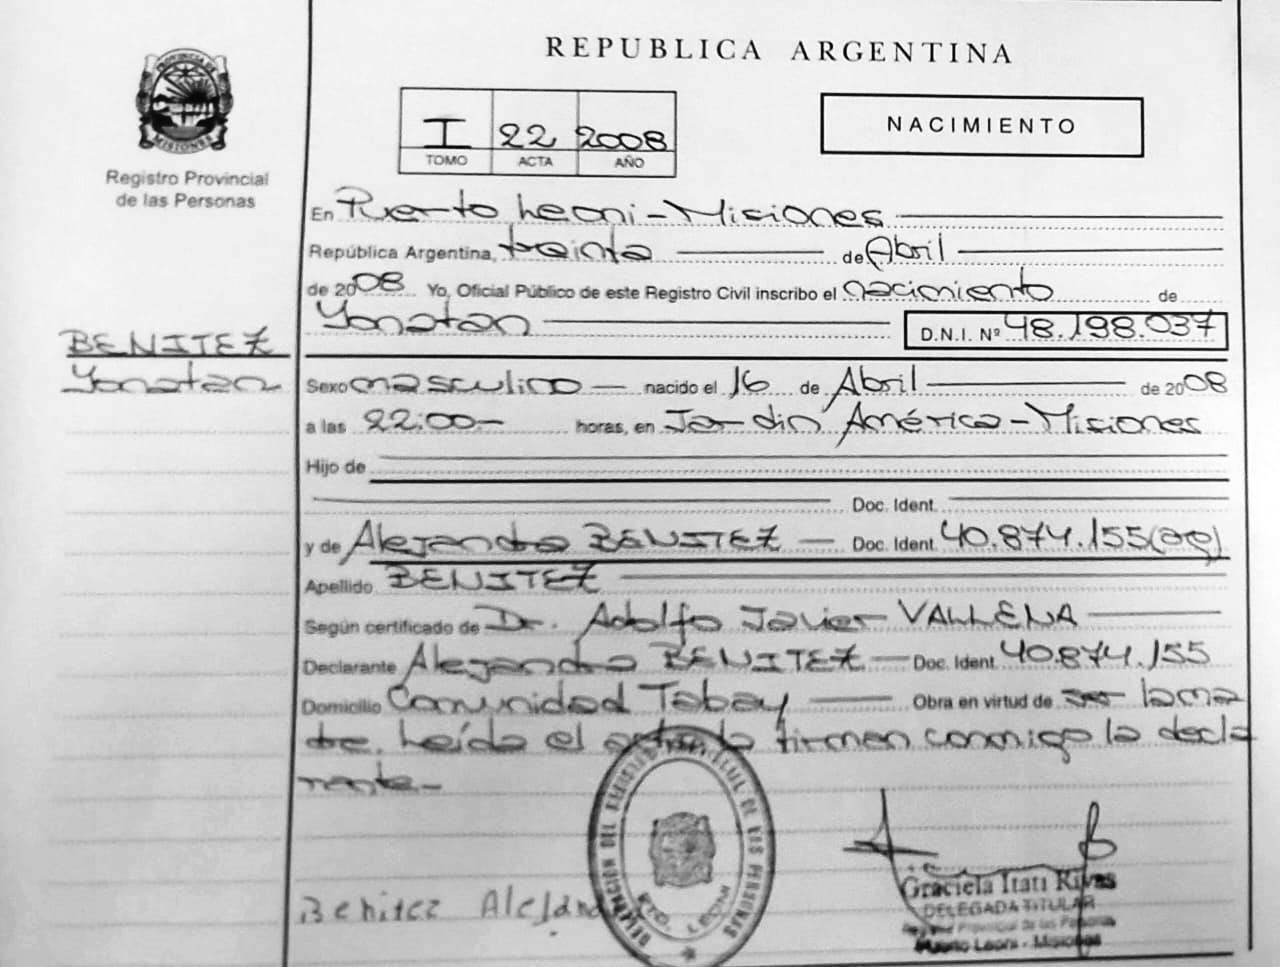 REPUBLICA ARGENTINA
PROVINCIA DE
MISIONES
Registro Provincial
de las Personas
I 22 2008
TOMO ACTA AÑO
NACIMIENTO
En Puerto Leoni - Misiones
República Argentina, treinta de Abril
de 2008 Yo, Oficial Público de este Registro Civil inscribo el nacimiento de
Yonatan D.N.I. Nº 48.198.037
BENITEZ
Yonatan
Sexo masculino nacido el 16 de Abril de 2008
a las 22:00- horas, en Jardin América - Misiones
Hijo de
Doc. Ident.
y de Alejandra BENITEZ - Doc. Ident. 40.874.155(ag)
Apellido BENITEZ
Según certificado de Dr. Adolfo Javier VALLENA
Declarante Alejandra BENITEZ - Doc. Ident. 40.874.155
Domicilio Comunidad Tabay Obra en virtud de ser la ma
dre. Leída el acta la firman conmigo la decla
rante.-
DELEGACION DEL REGISTRO PROVINCIAL DE LAS PERSONAS
PTO. LEONI
Benitez
Graciela Itati Rivas
DELEGADA TITULAR
Registro Provincial de las Personas
Puerto Leoni - Misiones